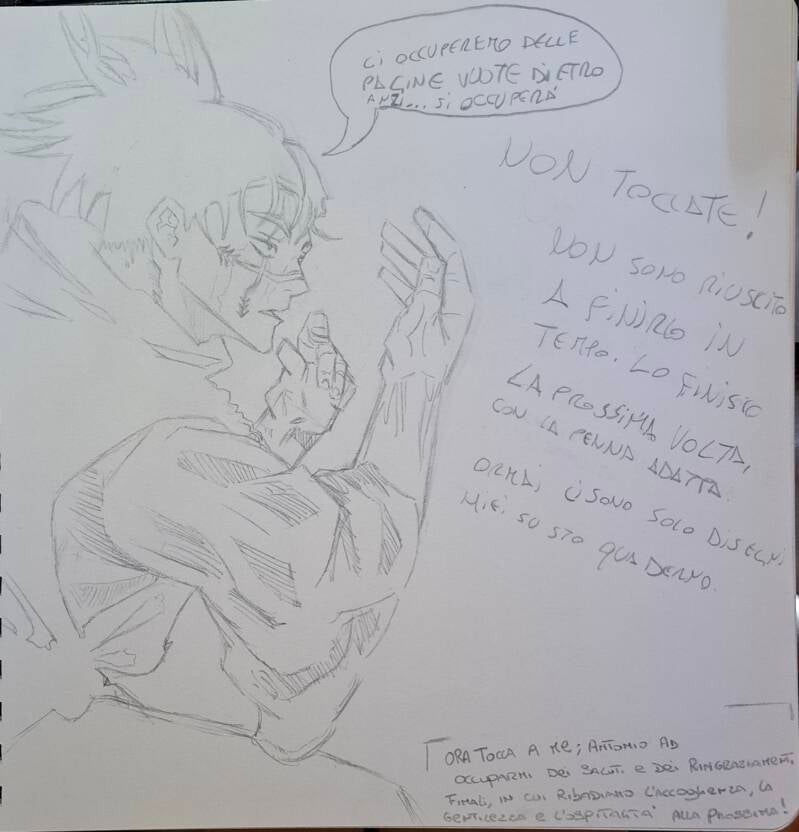 CI OCCUPEREMO DELLE
PAGINE VUOTE DIETRO
ANZI... SI OCCUPERÀ
NON TOCCATE!
NON SONO RIUSCITO
A FINIRLO IN
TEMPO. LO FINISCO
LA PROSSIMA VOLTA,
CON LA PENNA ADATTA.
ORMAI CI SONO SOLO DISEGNI
MIEI SU STO QUADERNO.
ORA TOCCA A ME; ANTONIO AD
OCCUPARMI DEI SALUTI E DEI RINGRAZIAMENTI
FINALI, IN CUI RIBADIAMO L'ACCOGLIENZA, LA
GENTILEZZA E L'OSPITALITÀ ALLA PROSSIMA!